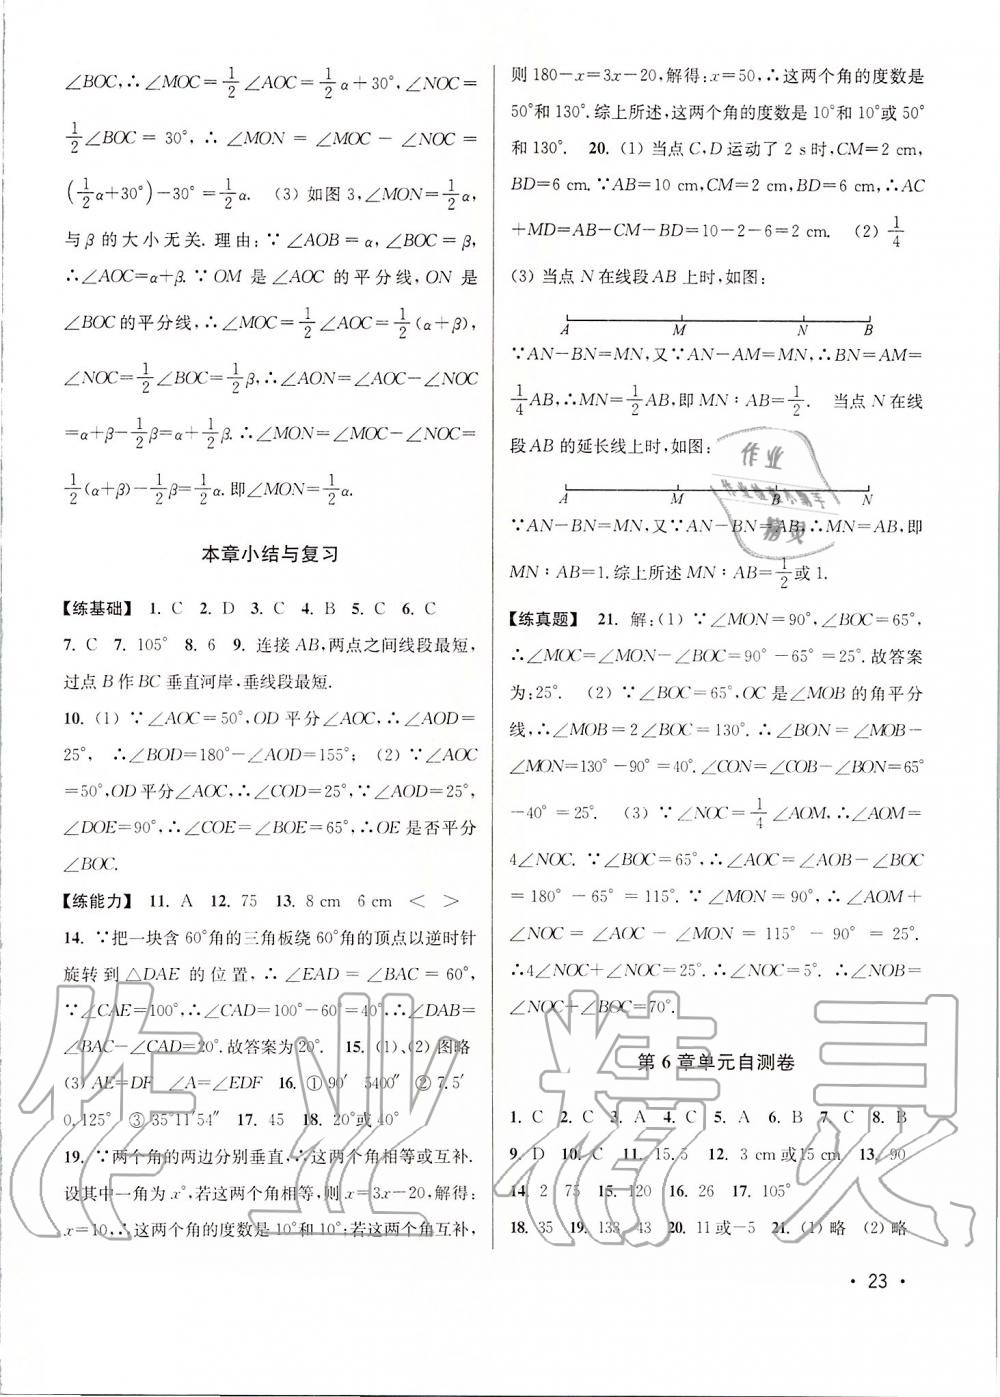 ∠BOC,∴∠MOC=1/2∠AOC=1/2α+30°,∠NOC=
1/2∠BOC=30°,∴∠MON=∠MOC-∠NOC=
(1/2α+30°)-30°=1/2α. (3)如图3,∠MON=1/2α,
与β的大小无关.理由:∵∠AOB=α,∠BOC=β,
∴∠AOC=α+β.∵OM是∠AOC的平分线,ON是
∠BOC的平分线,∴∠MOC=1/2∠AOC=1/2(α+β),
∠NOC=1/2∠BOC=1/2β,∴∠AON=∠AOC-∠NOC
=α+β-1/2β=α+1/2β.∴∠MON=∠MOC-∠NOC=
1/2(α+β)-1/2β=1/2α.即∠MON=1/2α.
本章小结与复习
【练基础】 1. C 2. D 3. C 4. B 5. C 6. C
7. C 7. 105° 8. 6 9. 连接AB,两点之间线段最短,
过点B作BC垂直河岸,垂线段最短.
10. (1)∵∠AOC=50°,OD平分∠AOC,∴∠AOD=
25°, ∴∠BOD=180°-∠AOD=155°; (2)∵∠AOC
=50°,OD平分∠AOC,∴∠COD=25°,∵∠AOD=25°,
∠DOE=90°,∴∠COE=∠BOE=65°,∴OE是否平分
∠BOC.
【练能力】 11. A 12. 75 13. 8 cm 6 cm < >
14. ∵把一块含60°角的三角板绕60°角的顶点以逆时针
旋转到△DAE的位置,∴∠EAD=∠BAC=60°,
∵∠CAE=100°,∴∠CAD=100°-60°=40°,∴∠DAB=
∠BAC-∠CAD=20°.故答案为20°. 15. (1)、(2)图略
(3)AE=DF ∠A=∠EDF 16. ①90′ 5400″ ②7.5′
0.125° ③35°11′54″ 17. 45 18. 20°或40°
19. ∵两个角的两边分别垂直,∴这两个角相等或互补.
设其中一角为x°,若这两个角相等,则x=3x-20,解得:
x=10,∴这两个角的度数是10°和10°;若这两个角互补,
则180-x=3x-20,解得:x=50,∴这两个角的度数是
50°和130°.综上所述,这两个角的度数是10°和10°或50°
和130°. 20. (1)当点C,D运动了2 s时,CM=2 cm,
BD=6 cm.∵AB=10 cm,CM=2 cm,BD=6 cm,∴AC
+MD=AB-CM-BD=10-2-6=2 cm. (2)1/4
(3)当点N在线段AB上时,如图:
A M N B
∵AN-BN=MN,又∵AN-AM=MN,∴BN=AM=
1/4AB,∴MN=1/2AB,即MN∶AB=1/2. 当点N在线
段AB的延长线上时,如图:
A M B N
∵AN-BN=MN,又∵AN-BN=AB,∴MN=AB,即
MN∶AB=1.综上所述MN∶AB=1/2或1.
【练真题】 21. 解:(1)∵∠MON=90°,∠BOC=65°,
∴∠MOC=∠MON-∠BOC=90°-65°=25°.故答案
为:25°. (2)∵∠BOC=65°,OC是∠MOB的角平分
线,∴∠MOB=2∠BOC=130°.∴∠BON=∠MOB-
∠MON=130°-90°=40°.∠CON=∠COB-∠BON=65°
-40°=25°. (3)∵∠NOC=1/4∠AOM,∴∠AOM=
4∠NOC.∵∠BOC=65°,∴∠AOC=∠AOB-∠BOC
=180°-65°=115°.∵∠MON=90°,∴∠AOM+
∠NOC=∠AOC-∠MON=115°-90°=25°.
∴4∠NOC+∠NOC=25°.∴∠NOC=5°.∴∠NOB=
∠NOC+∠BOC=70°.
第6章单元自测卷
1. C 2. C 3. A 4. C 5. A 6. B 7. C 8. B
9. D 10. C 11. 15.5 12. 3 cm或15 cm 13. 90
14. 2 75 15. 120 16. 26 17. 105°
18. 35 19. 133 43 20. 11或-5 21. (1)略 (2)略
· 23 ·
作业精灵